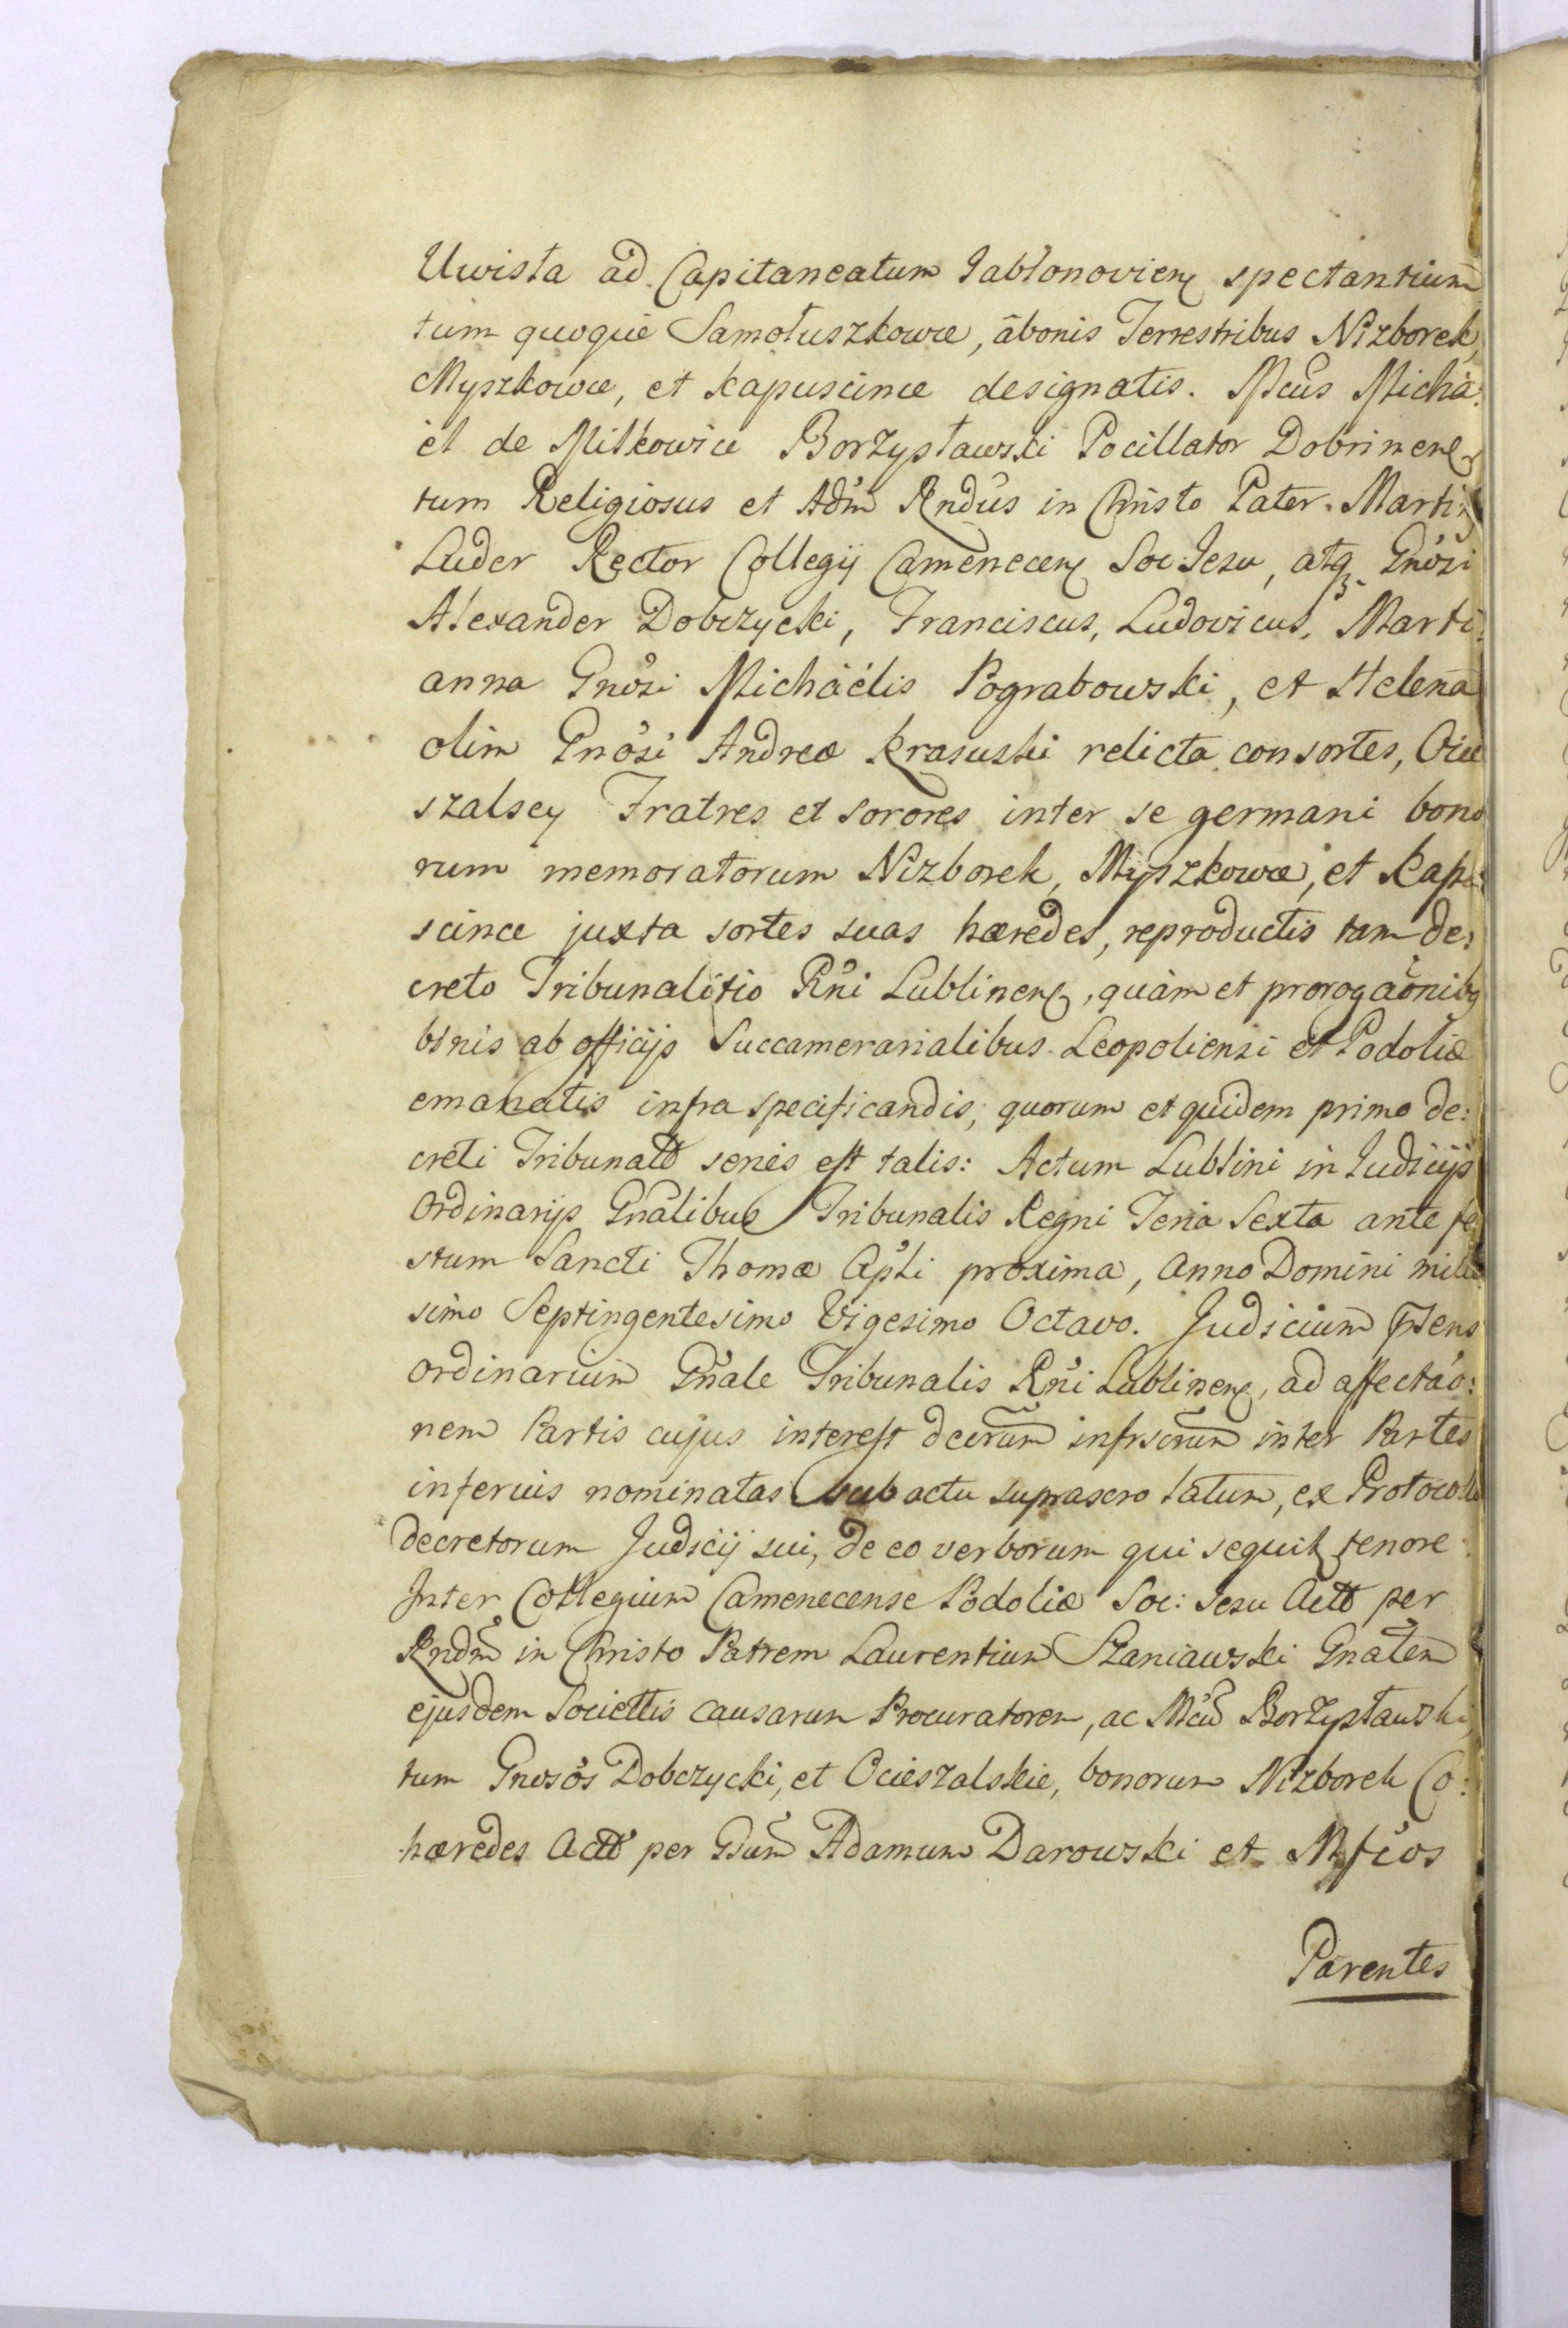 Uwista ad Capitaneatum Jabłonovien spectantium
tum quoque Samołuszkowce, â bonis Terrestribus Nizborek,
Myszkowce, et Kapuscince designatis. Mcus Micha:
el de Miłkowice Borzysławski Pocillator Dobrinen
tum Religiosus et Adm Rndus in Christo Pater Martin
Luder Rector Collegij Camenecen Soc: Jesu, atq Gnosi
Alexander Dobczycki, Franciscus, Ludovicus, Marti:
anna Gnosi Michäélis Pograbowski, et Helena
olim Gnosi Andreæ Krasuski relicta consortes, Ocie
szalscy Fratres et Sorores inter se germani bono
rum memoratorum Nizborek, Myszkowce, et Kapu:
scince juxta sortes suas hæredes, reproductis tam de:
creto Tribunalitio Rni Lublinen, quàm et prorogaõnibq
binis ab officijs Succamerarialibus Leopoliensi et Podoliæ
emanatis infra specificandis, quorum et quidem primo de:
creti Tribunalt series est talis: Actum Lublini in Judicijs
Ordinarijs Gnalibus Tribunalis Regni Feria Sexta ante fe
stum Sancti Thomæ Apli proxima, Anno Domini mille
simo Septingentesimo Vigesimo Octavo. Judicium pñens
Ordinarium Gnale Tribunalis Rni Lublinen, ad affectaõ:
nem Partis cujus interest dcrum infrscrum inter Partes
inferius nominatas sub actu suprascro latum, ex Protocollo
decretorum Judicij sui, de eo verborum qui sequit tenore:
Inter Collegium Camenecense Podoliæ Soc: Jesu Actt per
Rndm in Christo Patrem Laurentium Szaniawski Gnalem
ejusdem Societtis causarum Procuratorem, ac Mcũ Borzysławski,
tum Gnosos Dobczycki, et Ocieszalskie, bonorum Nizborek Co:
hæredes Actt per Gsum Adamum Darowski et Mfcos
Parentes